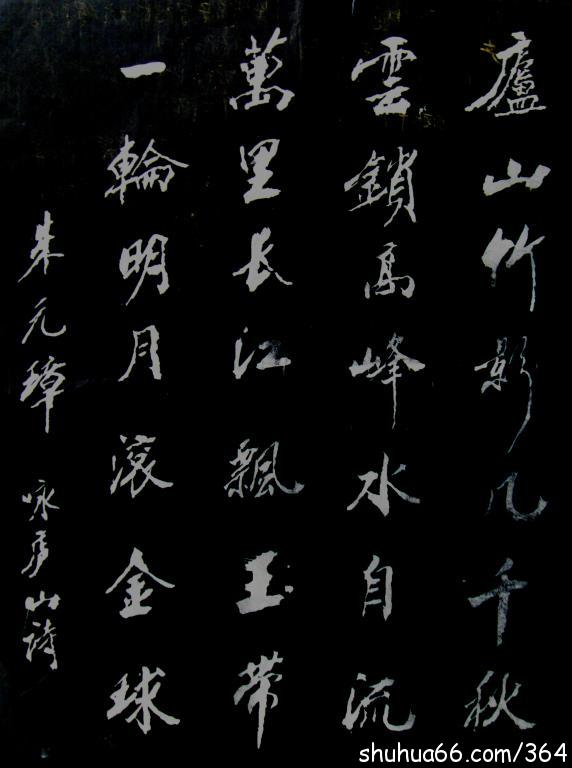 廬山竹影几千秋
雲鎖高峰水自流
萬里长江飄玉帶
一輪明月滾金球
朱元璋 咏庐山詩
shuhua66.com/364